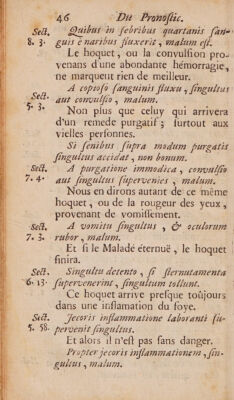 46 Du Pronostic.
Sect. Quibus in febribus quartanis san-
8. 3. guis è naribus fluxerit, malum est.
Le hoquet, ou la convulsion pro-
venans d'une abondante hémorragie,
ne marquent rien de meilleur.
Sect. A copioso sanguinis fluxu, singultus
5. 3. aut convulsio, malum.
Non plus que celuy qui arrivera
d'un remede purgatif; surtout aux
vielles personnes.
Si senibus supra modum purgatis
singultus accidat, non bonum.
Sect. A purgatione immodica, convulsio
7. 4. aut singultus superveniens, malum.
Nous en dirons autant de ce même
hoquet, ou de la rougeur des yeux,
provenant de vomissement.
Sect. A vomitu singultus, & oculorum
7. 3. rubor, malum.
Et si le Malade éternuë, le hoquet
finira.
Sect. Singultu detento, si sternutamenta
6. 13. supervenerint, singultum tollunt.
Ce hoquet arrive presque toûjours
dans une inflamation du foye.
Sect. Jecoris inflammatione laboranti su-
5. 58. pervenit singultus.
Et alors il n'est pas sans danger.
Propter jecoris inflammationem, sin-
gultus, malum.